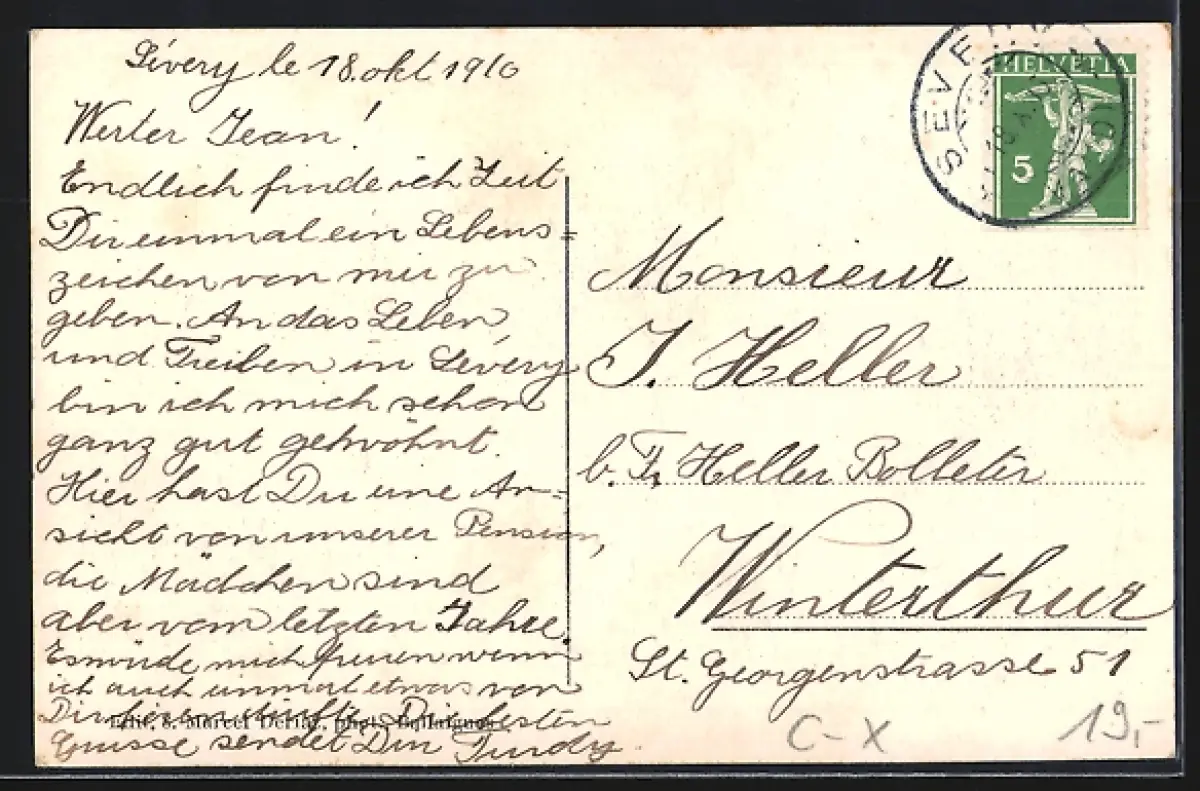 Sévery le 18. okt 1910
Werter Jean!
Endlich finde ich Zeit
Dir einmal ein Lebens=
zeichen von mir zu
geben. An das Leben
und Treiben in Sévery
bin ich mich schon
ganz gut gewöhnt.
Hier hast Du eine An=
sicht von unserer Pension,
die Mädchen sind
aber vom letzten Jahre.
Es würde mich freuen wenn
ich auch einmal etwas von
Dir hören dürfte. Die besten
Grüsse sendet Dir
Edit. s. Marcel Deriaz, phot. Ballaigues
SEVERY
HELVETIA
5
Monsieur
J. Heller
b. Fr. Heller Bolleter
Winterthur
St. Georgenstrasse 51
C-X
19,-